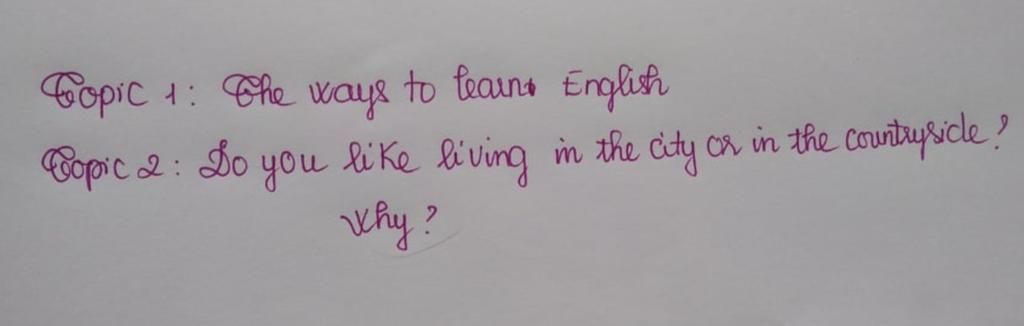 Topic 1: The ways to learn English
Topic 2: Do you like living in the city or in the countryside?
Why?